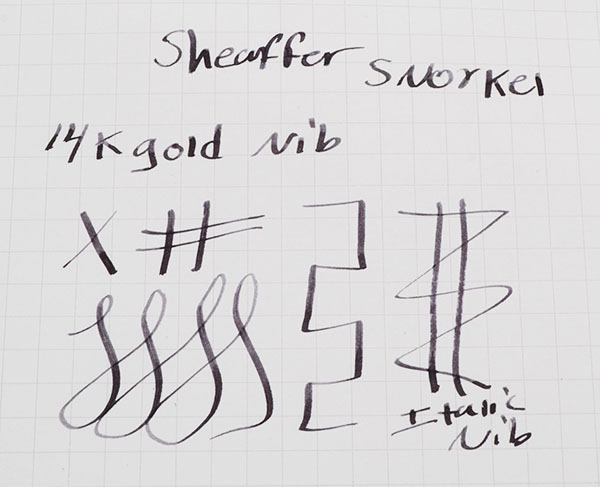 Sheaffer Snorkel
14K gold Nib
X #
Italic
Nib